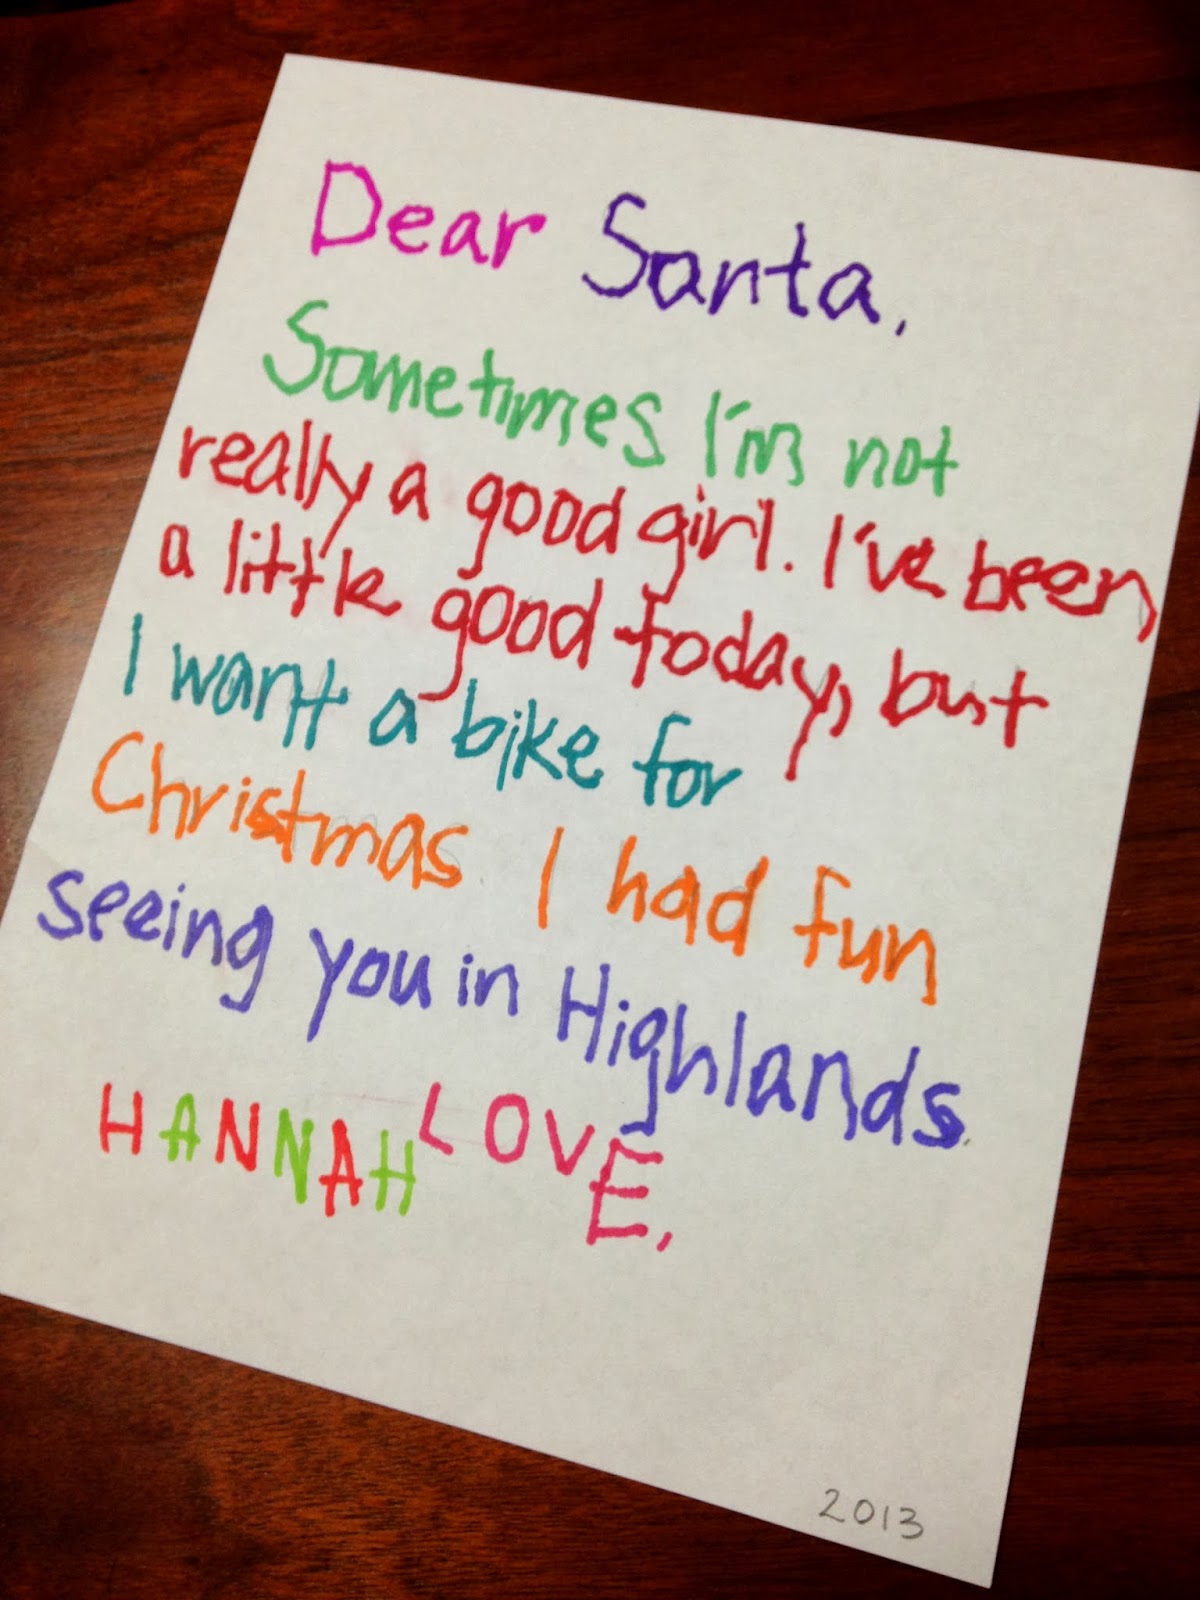 Dear Santa,
Sometimes I'm not
really a good girl. I've been
a little good today, but
I want a bike for
Christmas I had fun
seeing you in Highlands.
LOVE,
HANNAH
2013